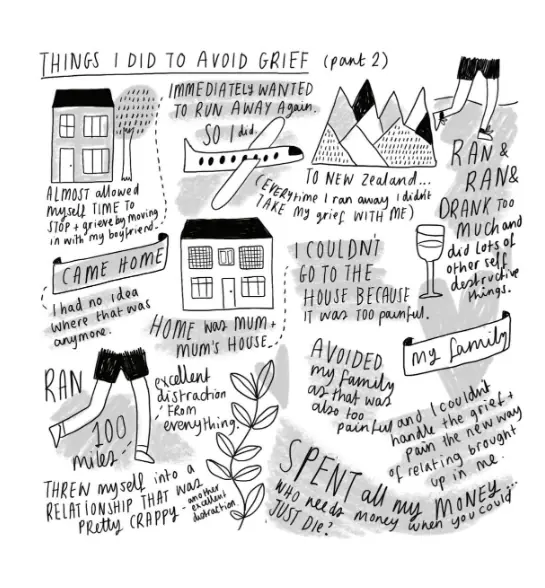 THINGS I DID TO AVOID GRIEF (part 2)
ALMOST allowed
myself TIME TO
STOP + grieve by moving
in with my boyfriend.
IMMEDIATELY WANTED
TO RUN AWAY Again.
SO I did.
TO NEW Zealand...
(EVERYtime I ran away I didn't
TAKE My grief WITH ME)
RAN &
RAN &
DRANK TOO
Much and
did LOTS of
other self
destructive
things.
CAME HOME
I had no idea
where that was
anymore.
HOME was MUM +
MUM'S HOUSE.
I COULDN'T
GO TO THE
HOUSE BECAUSE
IT was TOO painful.
my family
AVOIDED
my family
as that was
also too
painful and I couldn't
handle the grief +
pain the new way
of relating brought
up in me.
RAN
100
miles
excellent
distraction
FROM
everything.
THREW myself into a
RELATIONSHIP THAT WAS
PRETTY CRAPPY - another
excellent
distraction
SPENT all my MONEY...
WHO needs money when you could
JUST Die?